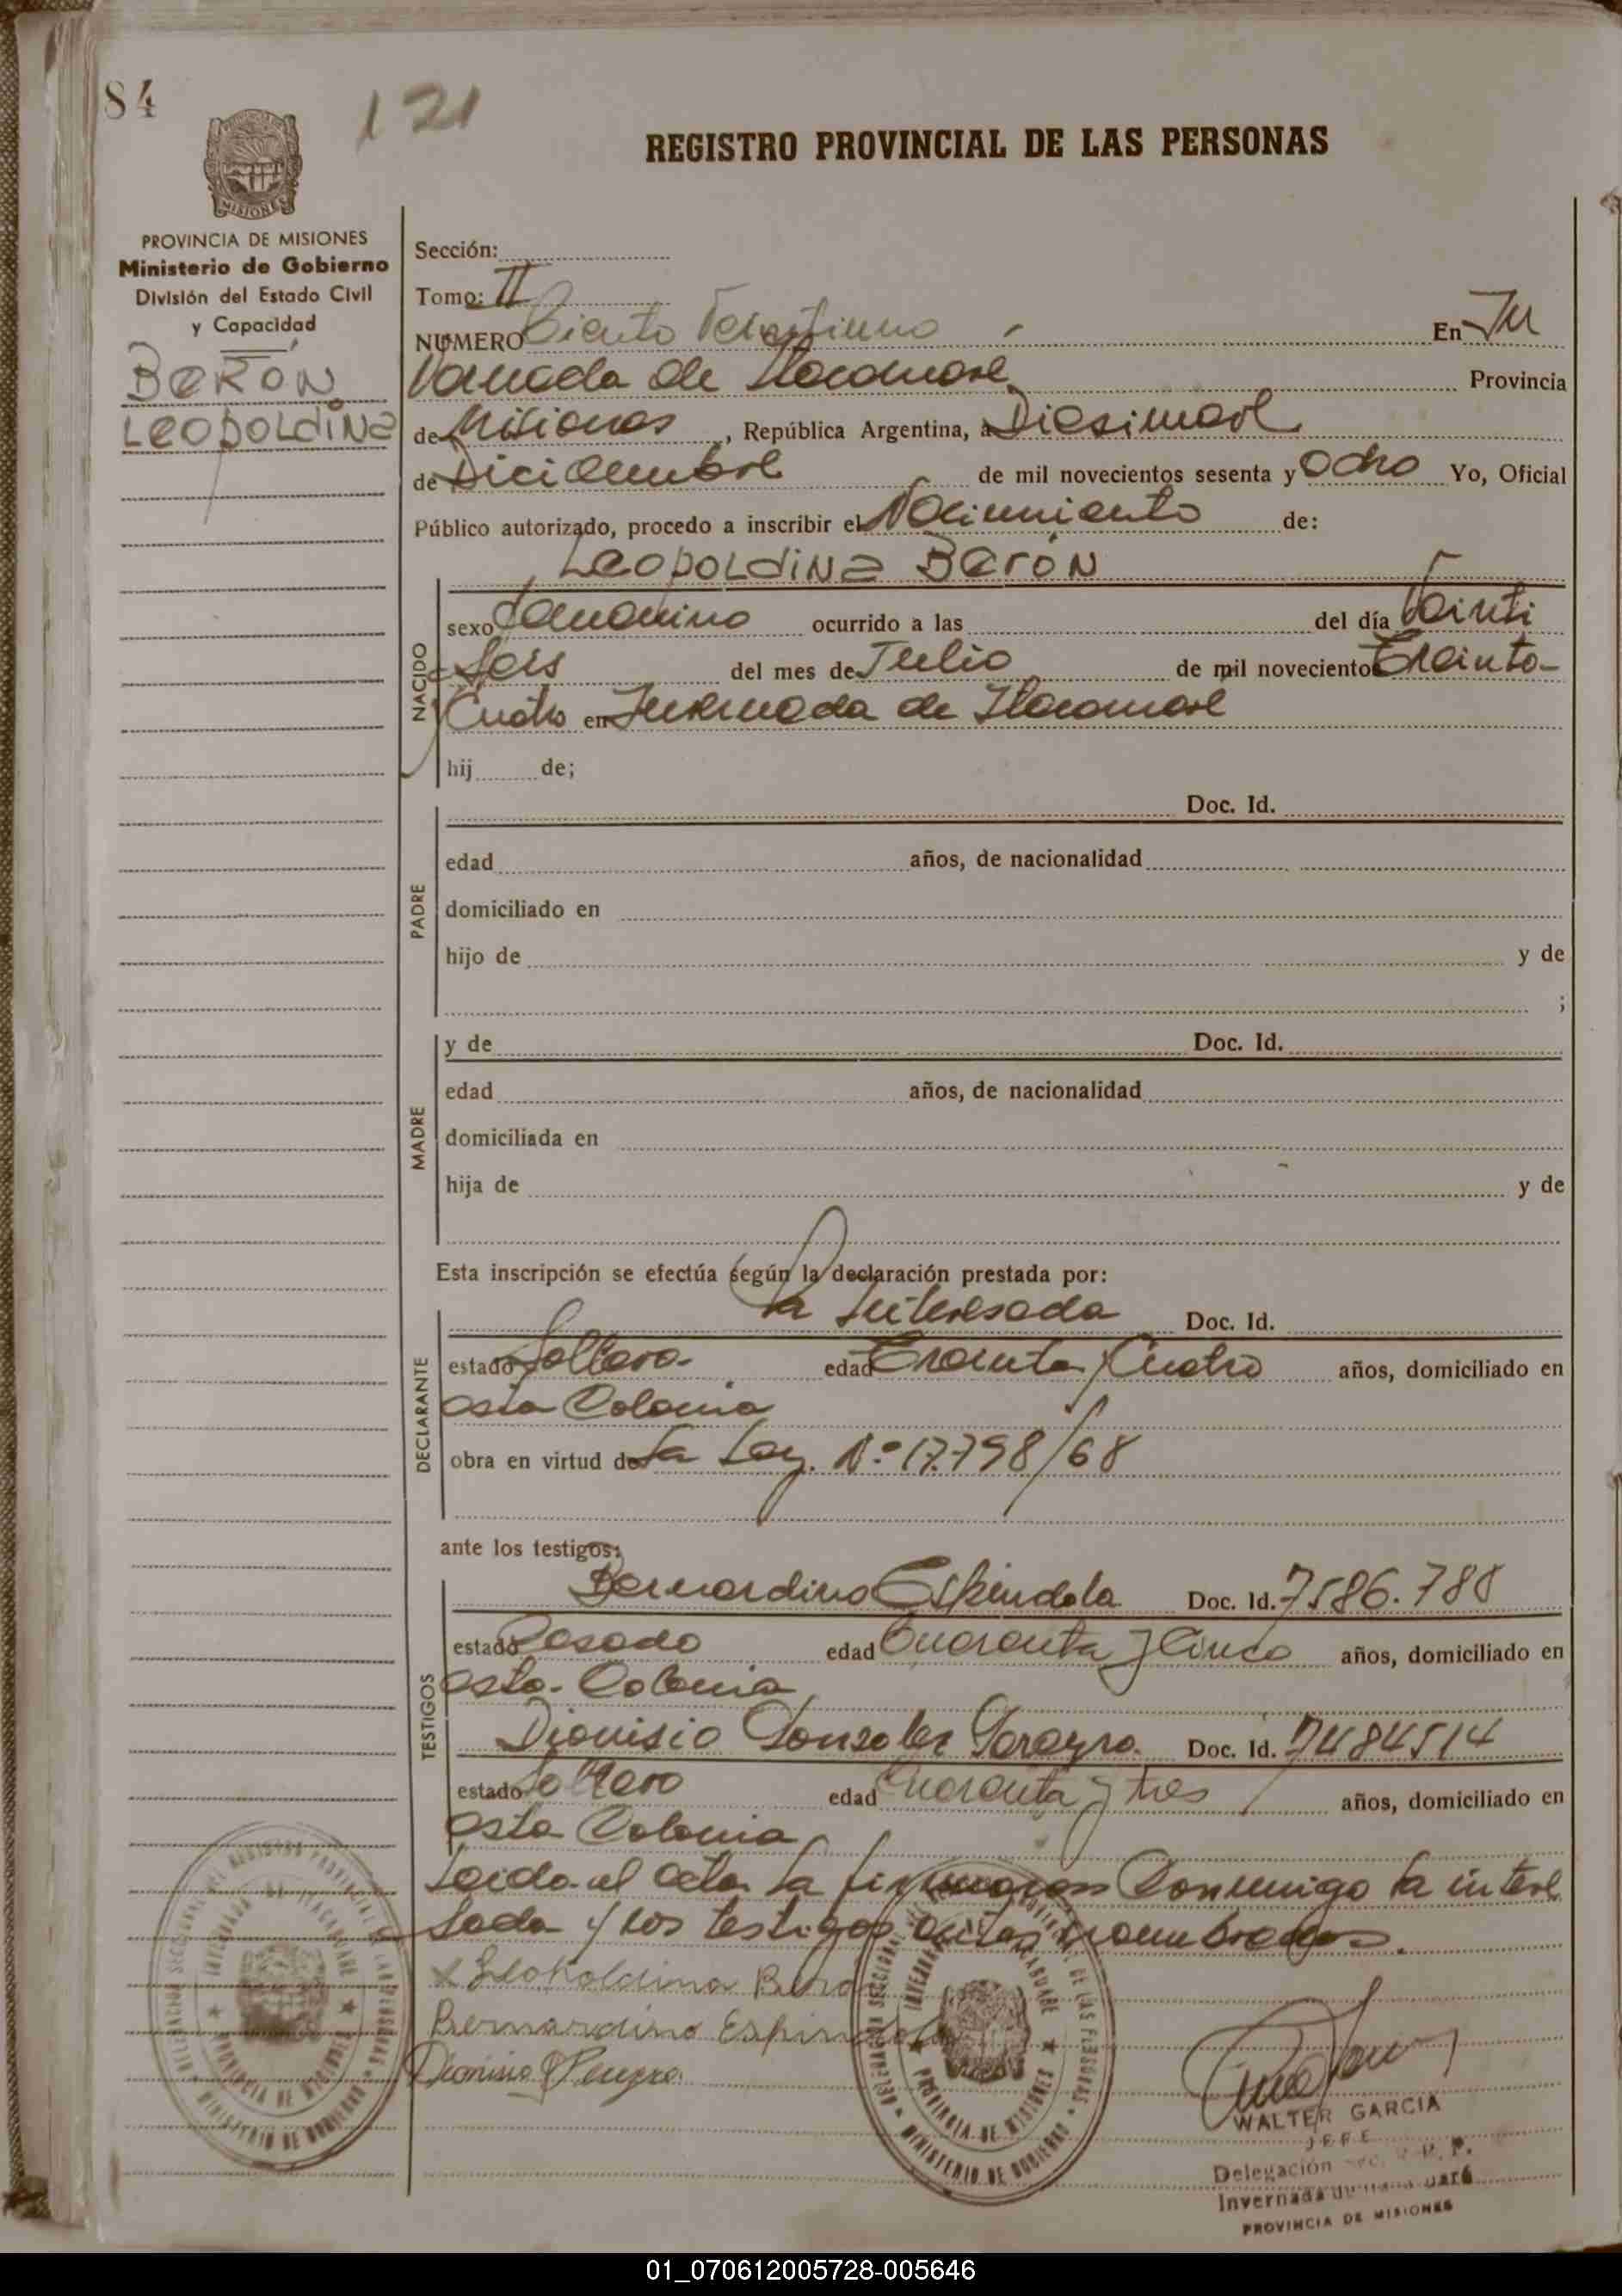 84
121
REGISTRO PROVINCIAL DE LAS PERSONAS
MISIONES
PROVINCIA DE MISIONES
Ministerio de Gobierno
División del Estado Civil
y Capacidad
BerÓN
LeopoLdiNa
Sección:
Tomo: II
NUMERO Ciento Veintiuno En In
vernada de Itacaruaré Provincia
de Misiones, República Argentina, a Diesinueve
de Diciembre de mil novecientos sesenta y Ocho Yo, Oficial
Público autorizado, procedo a inscribir el Nacimiento de:
LeopoLdiNa BerÓN
NACIDO
sexo Femenino ocurrido a las del día Veinti
Seis del mes de Julio de mil novecientos Treinta
y Cuatro en Invernada de Itacaruaré
hij de;
PADRE
Doc. Id.
edad años, de nacionalidad
domiciliado en
hijo de y de
;
MADRE
y de Doc. Id.
edad años, de nacionalidad
domiciliada en
hija de y de
Esta inscripción se efectúa según la declaración prestada por:
DECLARANTE
la interesada Doc. Id.
estado Soltera edad Treinta y Cuatro años, domiciliado en
esta Colonia
obra en virtud de la Ley. Nº 17.798/68
ante los testigos:
TESTIGOS
Bernardino Espindola Doc. Id. 7586.788
estado Casado edad Cuarenta y Cinco años, domiciliado en
esta Colonia
Dionisio Gonzalez Doc. Id. 7484514
estado Soltero edad Cuarenta y tres años, domiciliado en
esta Colonia
Leida el acta la firmaron Conmigo la intere
sada y los testigos antes nombrados.
x Leopoldina Beron
Bernardino Espindola
Dionisio
WALTER GARCIA
JEFE
Delegación Sec. R. P. P.
Invernada de Itacaruaré
PROVINCIA DE MISIONES
DELEGACION SECCIONAL DEL REGISTRO PROVINCIAL DE LAS PERSONAS
INVERNADA DE ITACARUARE
PROVINCIA DE MISIONES
MINISTERIO DE GOBIERNO
DELEGACION SECCIONAL DE LAS PERSONAS
PROVINCIA DE MISIONES
MINISTERIO DE GOBIERNO
01_070612005728-005646